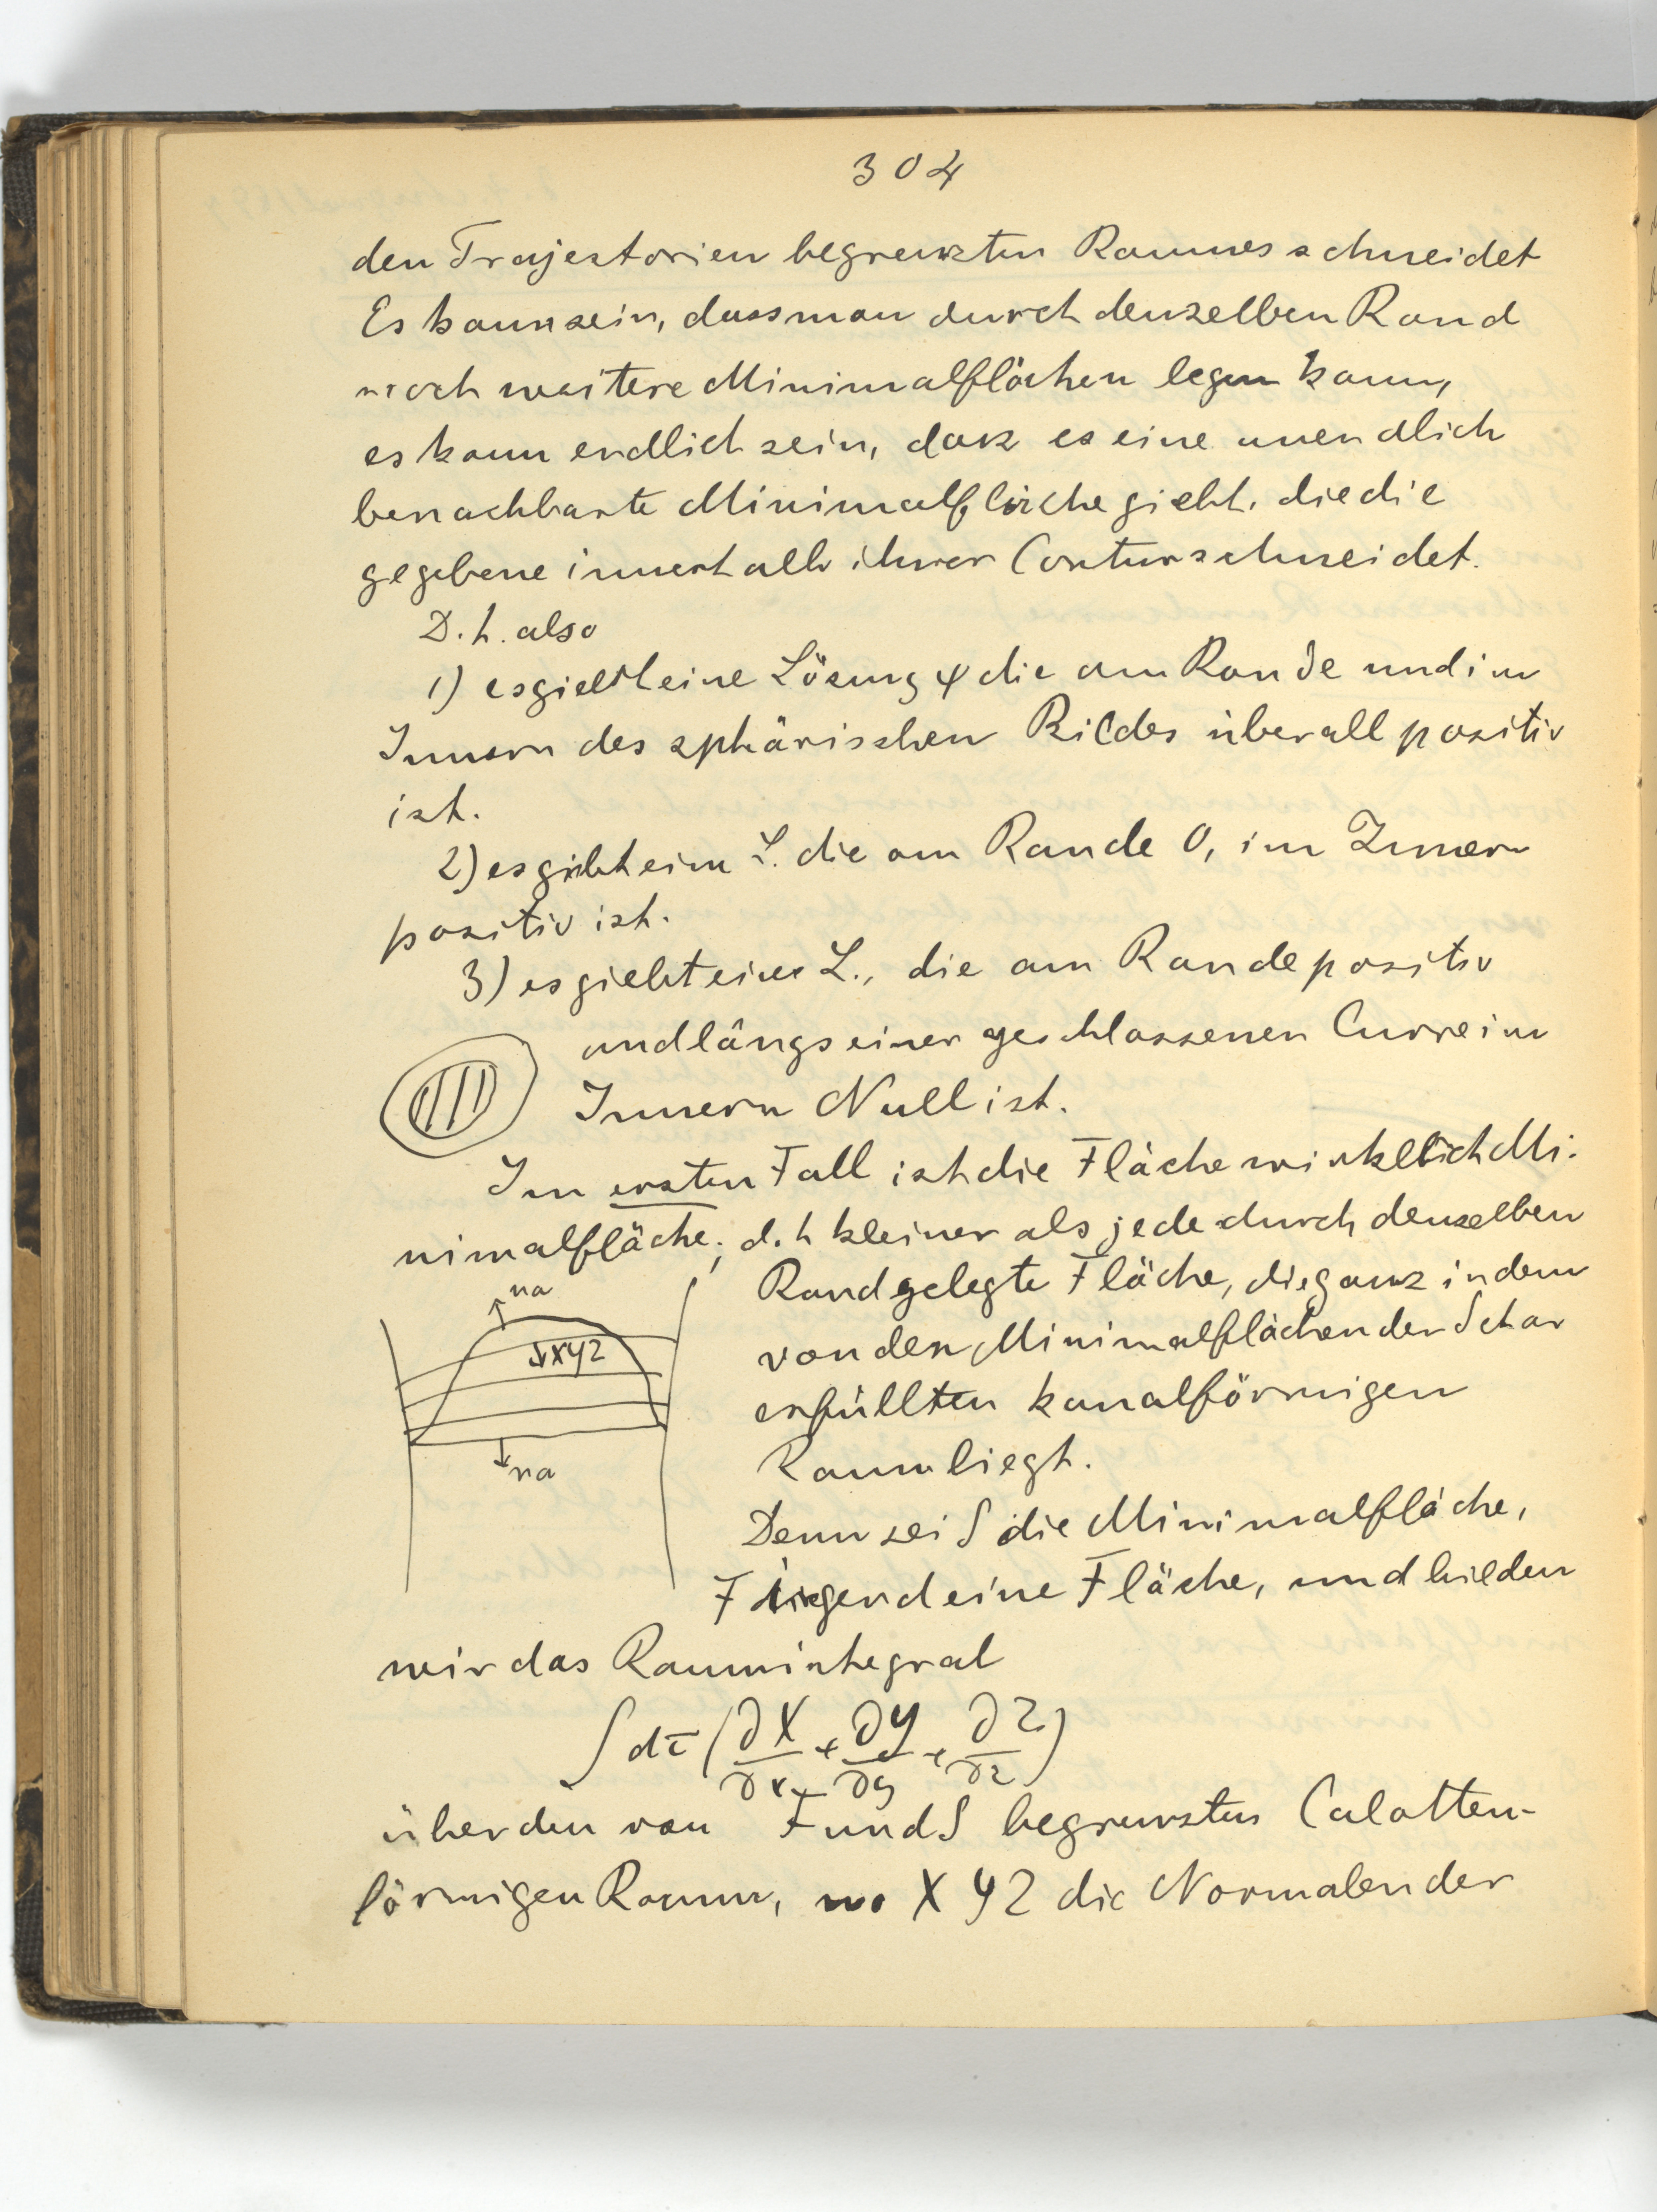 304
den Trajectorien begrenzten Raumes schneidet
Es kann sein, dass man durch denselben Rand
noch weitere Minimalflächen legen kann,
es kann endlich sein, dass es eine unendlich
benachbarte Minimalfläche giebt, die die
gegebene innerhalb ihrer Contur schneidet.
D. h. also
1) es giebt eine Lösung φ die am Rande und im
Innern des sphärischen Bildes überall positiv
ist.
2) es giebt eine L. die am Rande 0, im Innern
positiv ist.
3) es giebt eine L., die am Rande positiv
und längs einer geschlossenen Curve im
Innern Null ist.
Im ersten Fall ist die Fläche wirklich Mi-
nimalfläche; d. h kleiner als jede durch denselben
Rand gelegte Fläche, die ganz in dem
von den Minimalflächen der Schar
erfüllten kanalförmigen
Raum liegt.
na
XYZ
na
Denn sei S die Minimalfläche,
F irgend eine Fläche, und bilden
wir das Raumintegral
∫ dτ (∂X/∂x + ∂Y/∂y + ∂Z/∂z)
über den von F und S begrenzten Calotten-
förmigen Raum, wo X Y Z die Normalen der